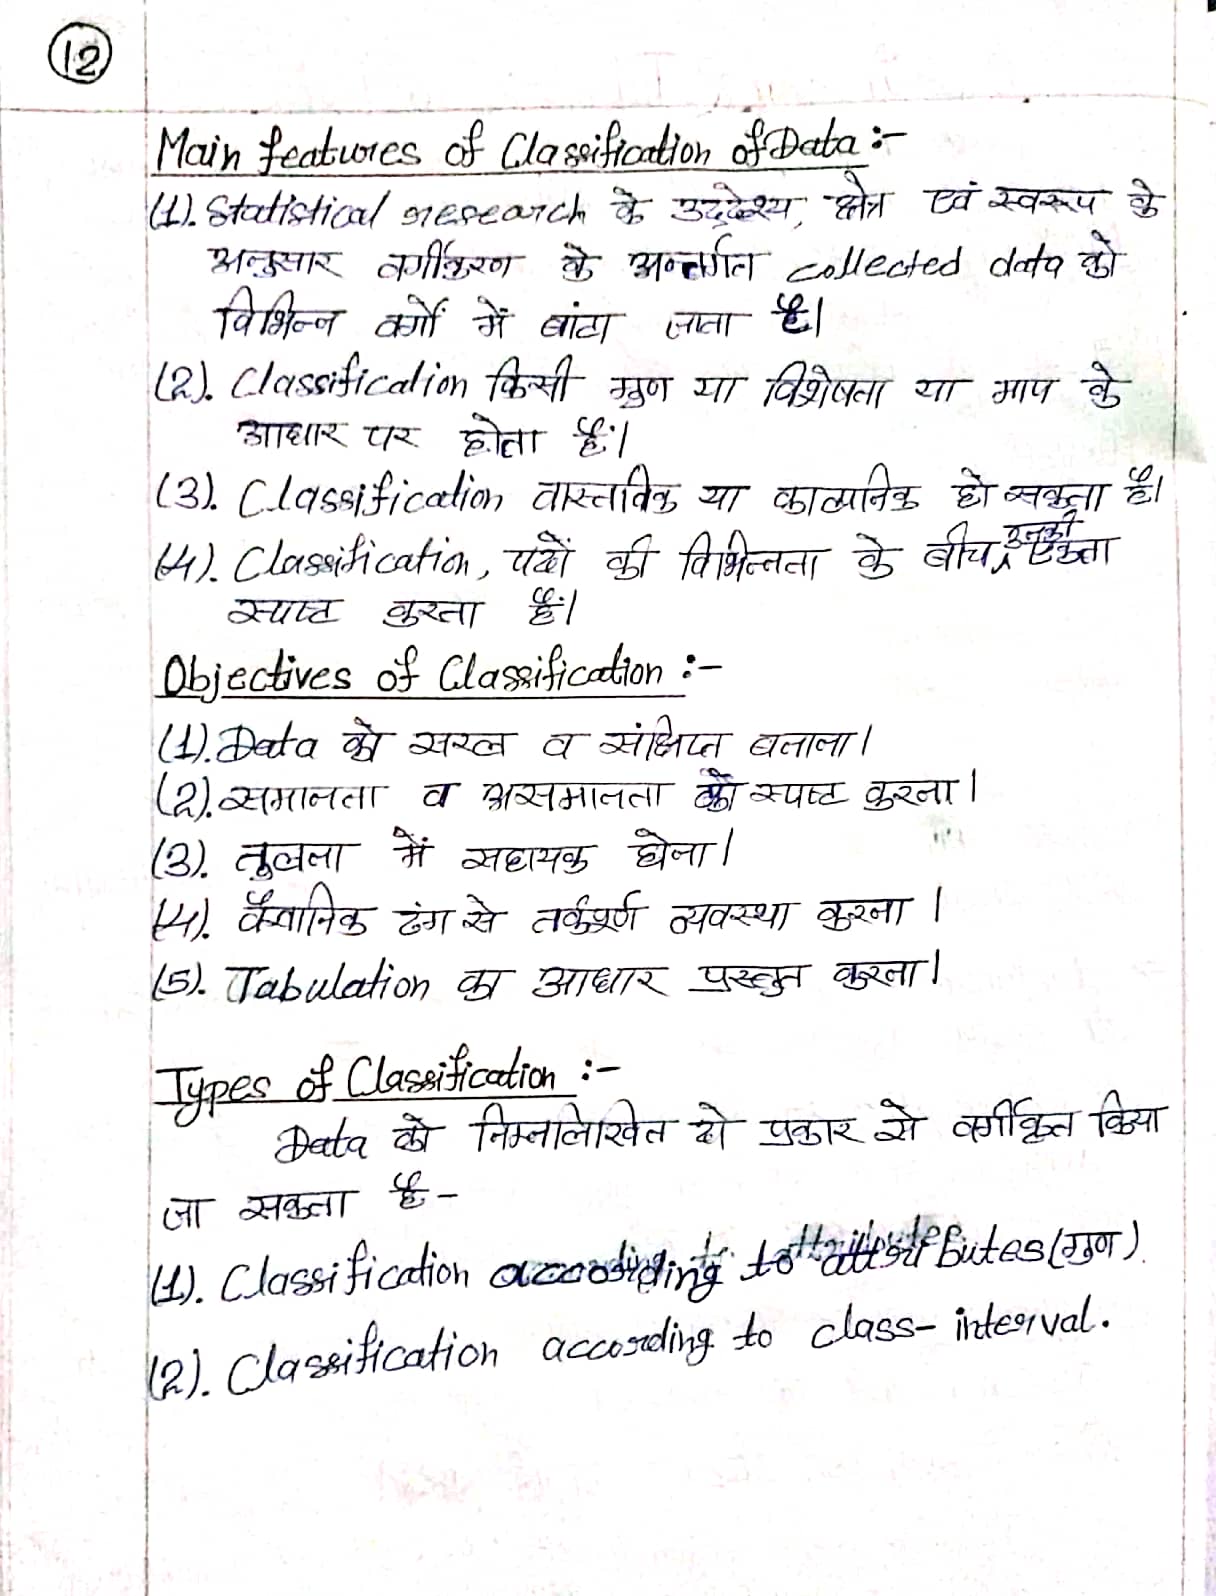 12
Main features of Classification of Data :-
(1). Statistical research के उद्देश्य, क्षेत्र एवं स्वरूप के
अनुसार वर्गीकरण के अन्तर्गत collected data को
विभिन्न वर्गों में बांटा जाता है।
(2). Classification किसी गुण या विशेषता या माप के
आधार पर होता है।
(3). Classification वास्तविक या काल्पनिक हो सकता है।
(4). Classification, पदों की विभिन्नता के बीच उनकी एकता
स्पष्ट करता है।
Objectives of Classification :-
(1). Data को सरल व संक्षिप्त बनाना।
(2). समानता व असमानता को स्पष्ट करना।
(3). तुलना में सहायक होना।
(4). वैज्ञानिक ढंग से तर्कपूर्ण व्यवस्था करना।
(5). Tabulation का आधार प्रस्तुत करना।
Types of Classification :-
Data को निम्नलिखित दो प्रकार से वर्गीकृत किया
जा सकता है -
(1). Classification according to attributes (गुण).
(2). Classification according to class-interval.